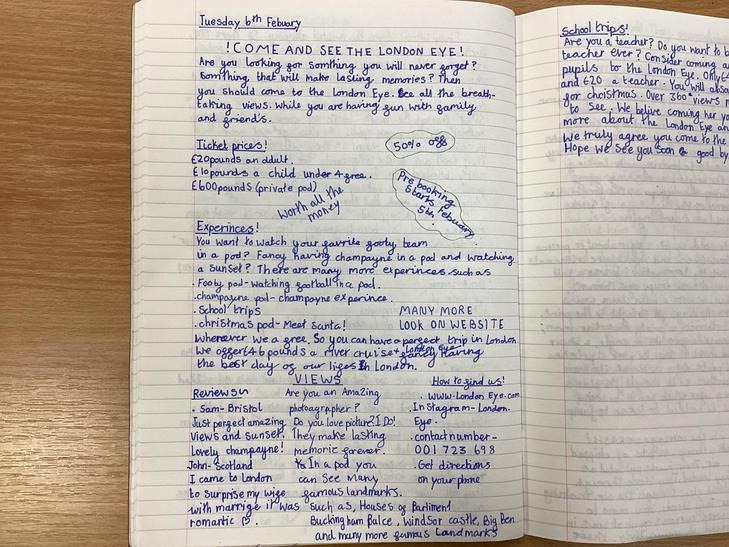 Tuesday 6th Febuary
!COME AND SEE THE LONDON EYE!
Are you looking for somthing you will never forget?
Somthing that will make lasting memories? Then
you should come to the London Eye. See all the breath-
taking views. While you are having fun with family
and friend's.
Ticket prices!
50% off
£20pounds an adult.
£10pounds a child under 4 free.
£600pounds (private pod)
Worth all the
money
Pre booking
Starts Febuary
5th.
Experinces!
You want to watch your favrite footy team
in a pod? Fancy having champayne in a pod and watching
a sunset? There are many more experinces such as
. Footy pod-watching football in a pod.
.champayne pod-champayne experince.
. School trips
.christmas pod-Meet Santa!
MANY MORE
LOOK ON WEBSITE
Whenever we a free. So you can have a perfect trip in London
We offer £46 pounds a river cruise + London Eye fancy having
the best day of our lifes In London.
VIEWS
Reviews
. Sam-Bristol
Just perfect amazing
views and sunset.
Lovely champayne!
John-Scotland
I came to London
to surprise my wife
with marrige it was
romantic
Are you an Amazing
photoagrapher?
Do you love picture? I DO!
They make lasting
memorie forever.
In a pod you
can see Many
famous landmarks.
such as, Houses of Parliment
Buckingham Palce, Windsor castle, Big Ben
and many more famous Landmarks
How to find us!
. WWW.London Eye.com
.Instagram-London.
Eye.
.contact number-
001 723 698
.Get directions
on your phone
School trips!
Are you a teacher? Do you want to b
teacher ever? Consider coming a
pupils to the London Eye. Only £
and £20 a teacher. You will also
for christmas. Over 360° views
to see. We belive coming her yo
more about the London Eye an
We truly agree you come to the
Hope we see you soon good by